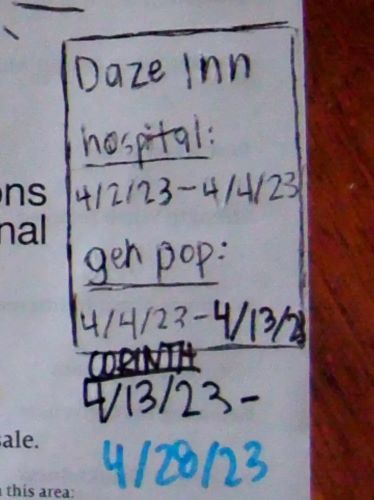 Daze Inn
hospital:
4/2/23-4/4/23
gen pop:
4/4/23-4/13/23
CORINTH
4/13/23-
4/28/23
ons
nal
ale.
this area: